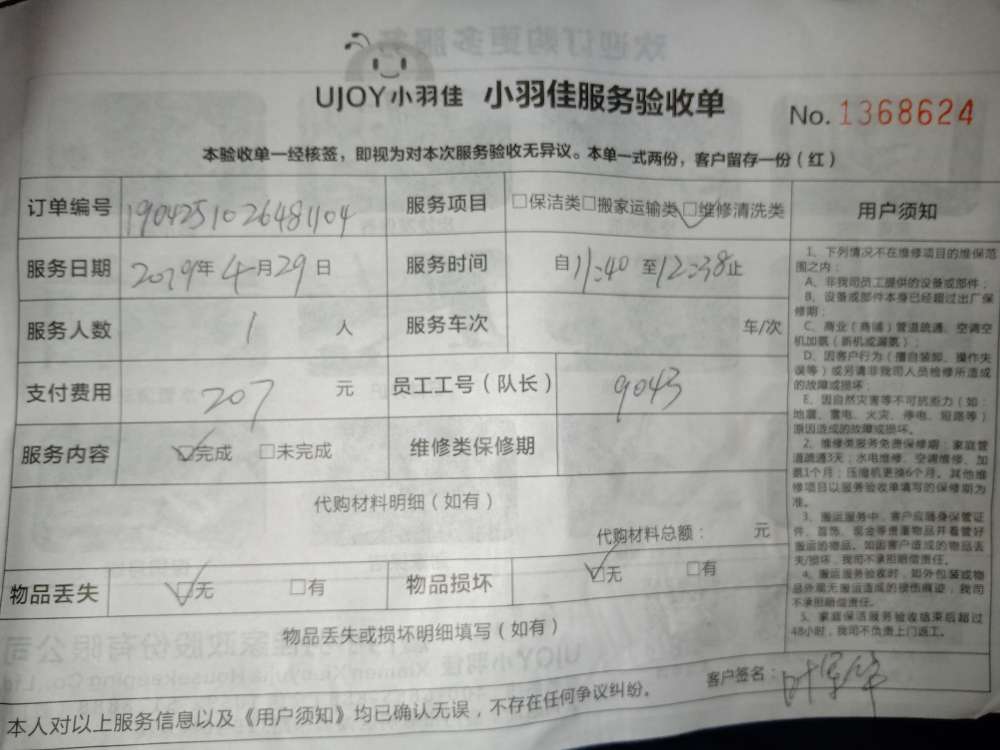 UJOY小羽佳 小羽佳服务验收单
No. 1368624
本验收单一经核签，即视为对本次服务验收无异议。本单一式两份，客户留存一份（红）
订单编号 1904251026481104 服务项目 □保洁类□搬家运输类□维修清洗类
服务日期 2019年4月29日 服务时间 自11:40至12:38止
服务人数 1 人 服务车次 车/次
支付费用 207 元 员工工号（队长） 9043
服务内容 □完成 □未完成 维修类保修期
代购材料明细（如有）
代购材料总额： 元
物品丢失 □无 □有 物品损坏 □无 □有
物品丢失或损坏明细填写（如有）
客户签名：叶
本人对以上服务信息以及《用户须知》均已确认无误，不存在任何争议纠纷。
用户须知
1、下列情况不在维修项目的维保范
围之内：
A、非我司员工提供的设备或部件；
B、设备或部件本身已经超过出厂保
修期；
C、商业（商铺）管道疏通、空调空
机加氨（新机或漏氨）；
D、因客户行为（擅自装卸、操作失
误等）或另请非我司人员检修所造成
的故障或损坏；
E、因自然灾害等不可抗拒力（如：
地震、雷电、火灾、停电、短路等）
原因造成的故障或损坏。
2、维修类服务免费保修期：家庭管
道疏通3天；水电维修、空调维修、加
氨1个月；压缩机更换6个月。其他维
修项目以服务验收单填写的保修期为
准。
3、搬运服务中，客户应随身保管证
件、首饰、现金等贵重物品并看管好
搬运的物品。如因客户造成的物品丢
失/损坏，我司不承担赔偿责任。
4、搬运服务验收时，如外包装或物
品外观无搬运造成的损伤痕迹，我司
不承担赔偿责任。
5、家庭保洁服务验收结束后超过
48小时，我司不负责上门返工。